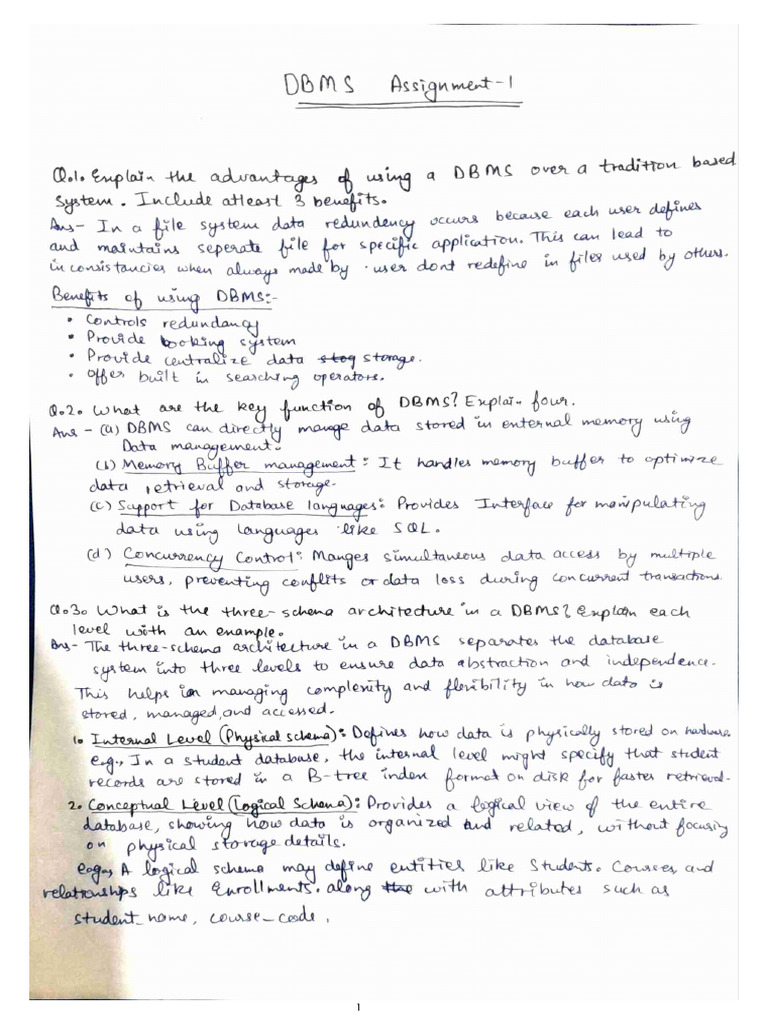 DBMS Assignment-1
Q.1. Explain the advantages of using a DBMS over a tradition based
system. Include atleast 3 benefits.
Ans- In a file system data redundency occurs because each user defines
and maintains seperate file for specific application. This can lead to
inconsistancies when always made by user dont redefine in files used by others.
Benefits of using DBMS:-
• Controls redundancy
• Provide booking system
• Provide centralize data stog storage.
• Offer built in searching operators.
Q.2. What are the key function of DBMS? Explain four.
Ans - (a) DBMS can directly mange data stored in external memory using
Data management.
(b) Memory Buffer management: It handles memory buffer to optimize
data retrieval and storage.
(c) Support for Database languages: Provides Interface for manipulating
data using languages like SQL.
(d) Concurrency Control: Manges simultaneous data access by multiple
users, preventing conflits or data loss during concurrent transactions.
Q.3. What is the three-schema architecture in a DBMS? Explain each
level with an example.
Ans- The three-schema architecture in a DBMS separates the database
system into three levels to ensure data abstraction and independence.
This helps in managing complexity and flexibility in how data is
stored, managed, and accessed.
1. Internal Level (Physical schema): Defines how data is physically stored on hardware
e.g., In a student database, the internal level might specify that student
records are stored in a B-tree index format on disk for faster retrieval.
2. Conceptual Level (Logical Schema): Provides a logical view of the entire
database, showing how data is organized and related, without focusing
on physical storage details.
e.g., A logical schema may define entities like Students. Courses, and
relationships like Enrollments. along the with attributes such as
student_name, course_code,
1